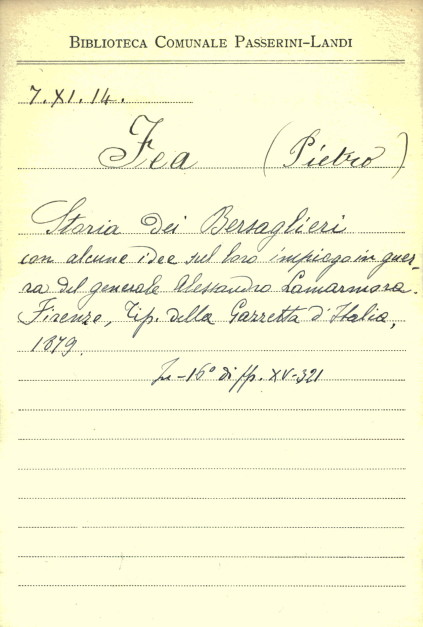 BIBLIOTECA COMUNALE PASSERINI-LANDI
7.XI.14.
Fea (Pietro)
Storia dei Bersaglieri
con alcune idee sul loro impiego in guer-
ra del generale Alessandro Lamarmora.
Firenze, Tip. della Gazzetta d'Italia,
1879.
In-16° di pp. XV-321